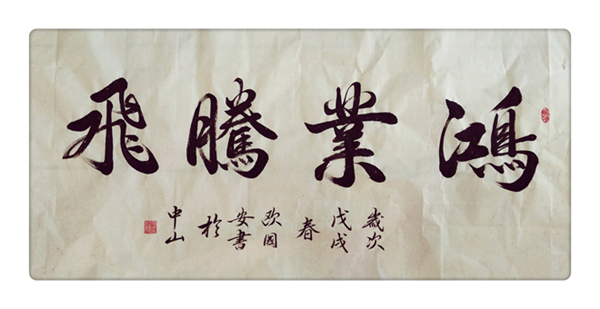 鴻業騰飛
歲次
戊戌
春
欧國
安書
於
中山